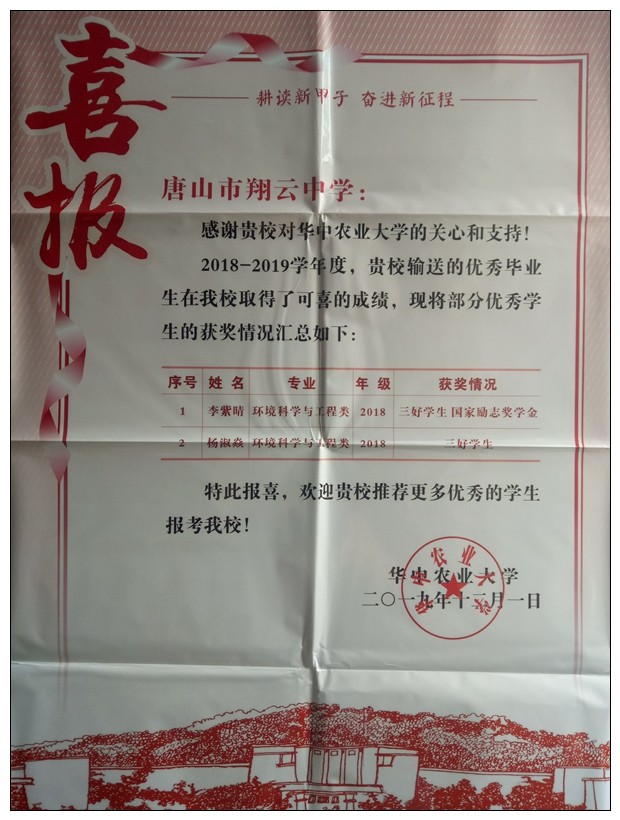 喜报
耕读新甲子 奋进新征程
唐山市翔云中学：
感谢贵校对华中农业大学的关心和支持！
2018-2019学年度，贵校输送的优秀毕业
生在我校取得了可喜的成绩，现将部分优秀学
生的获奖情况汇总如下：
序号 姓 名 专业 年 级 获奖情况
1 李紫晴 环境科学与工程类 2018 三好学生 国家励志奖学金
2 杨淑焱 环境科学与工程类 2018 三好学生
特此报喜，欢迎贵校推荐更多优秀的学生
报考我校！
华中农业大学
二〇一九年十二月一日
华中农业大学